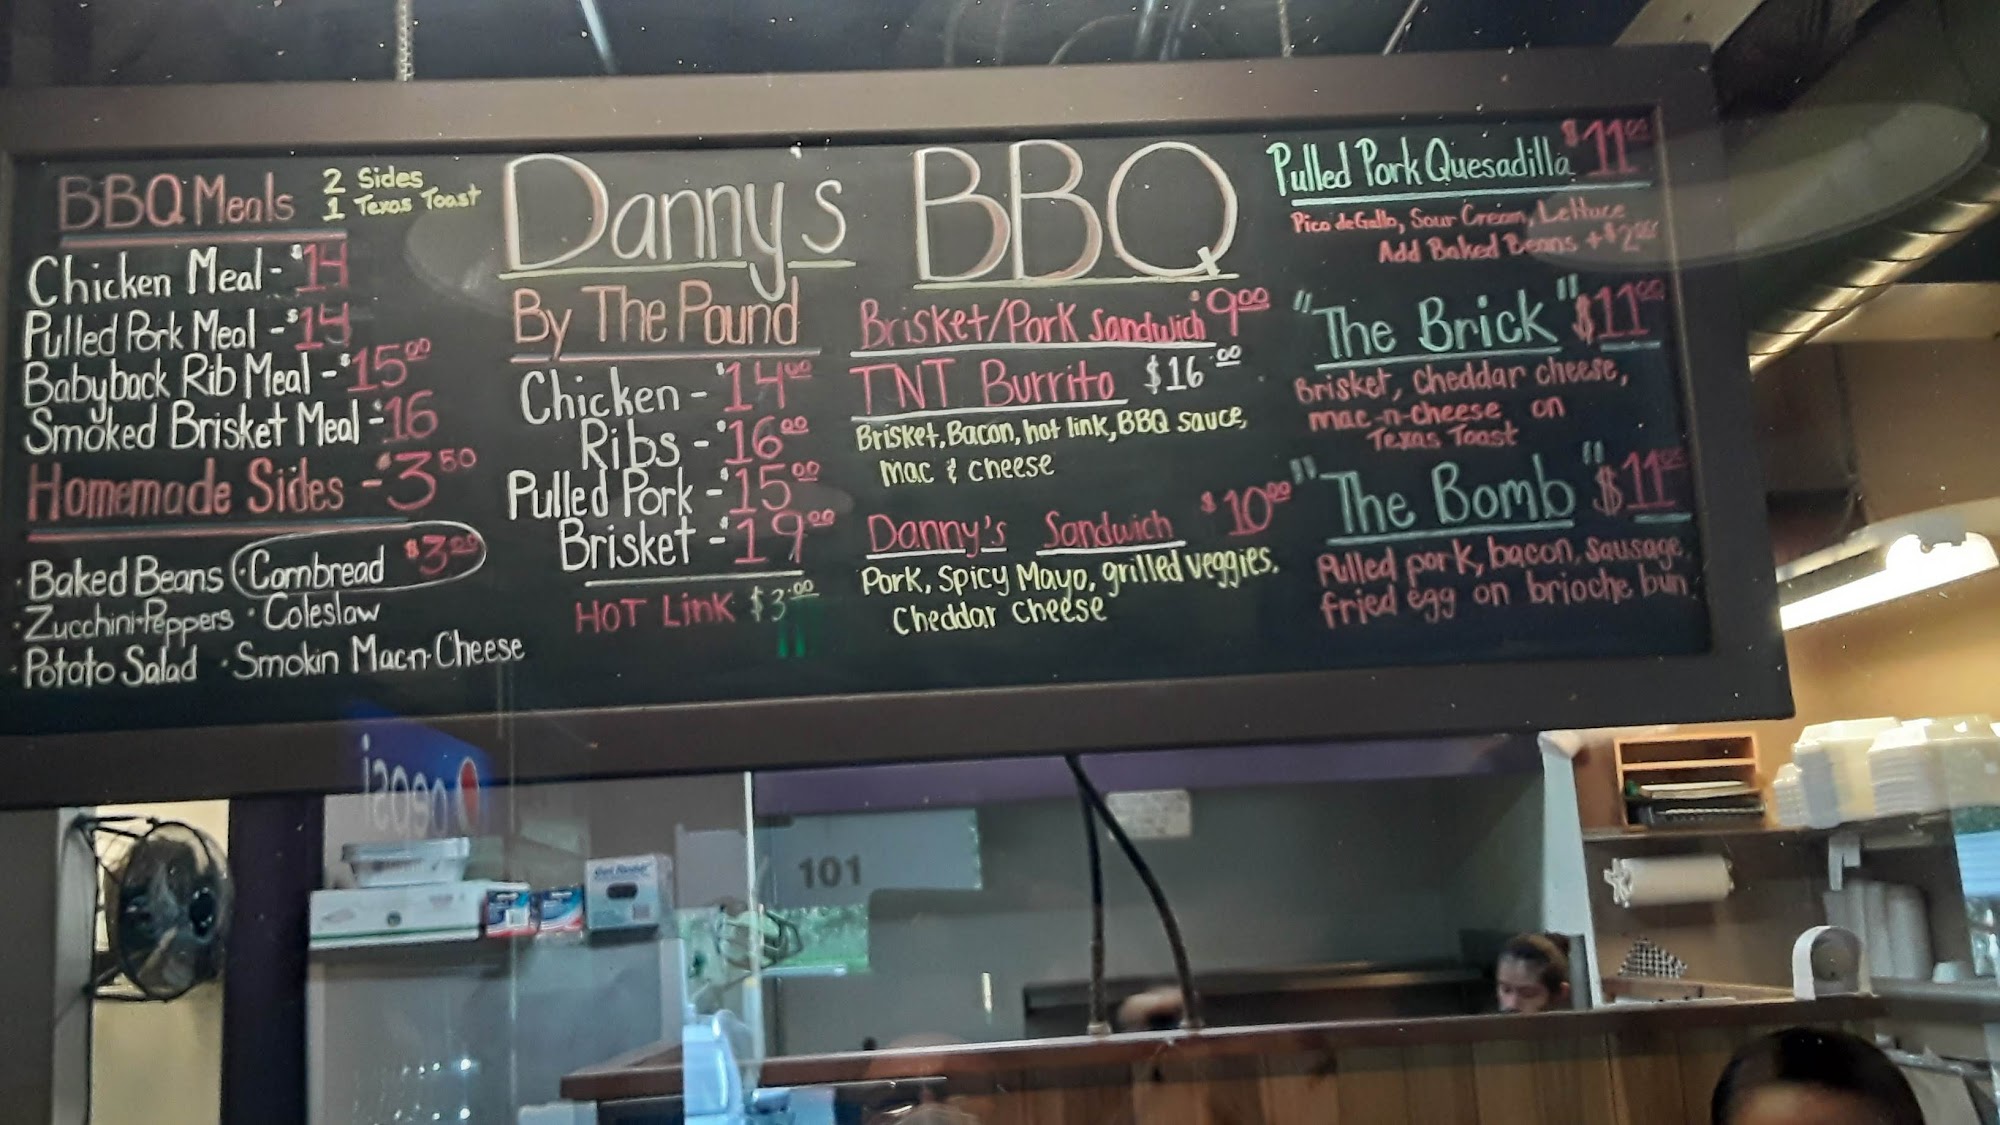 BBQ Meals
2 Sides
1 Texas Toast
Chicken Meal - $14
Pulled Pork Meal - $14
Babyback Rib Meal - $15.00
Smoked Brisket Meal - $16
Homemade Sides - $3.50
· Baked Beans · Cornbread $3.00
· Zucchini-Peppers · Coleslaw
· Potato Salad · Smokin Mac-n-Cheese
Danny's BBQ
By The Pound
Chicken - $14.00
Ribs - $16.00
Pulled Pork - $15.00
Brisket - $19.00
HOT Link $3.00
Brisket/Pork Sandwich $9.00
TNT Burrito $16.00
Brisket, Bacon, hot link, BBQ sauce,
mac & cheese
Danny's Sandwich $10.00
Pork, Spicy Mayo, grilled veggies,
Cheddar cheese
Pulled Pork Quesadilla $11.00
Pico de Gallo, Sour Cream, Lettuce
Add Baked Beans +$2.00
"The Brick" $11.00
Brisket, cheddar cheese,
mac-n-cheese on
Texas Toast
"The Bomb" $11.00
Pulled pork, bacon, sausage,
fried egg on brioche bun
pepsi
101